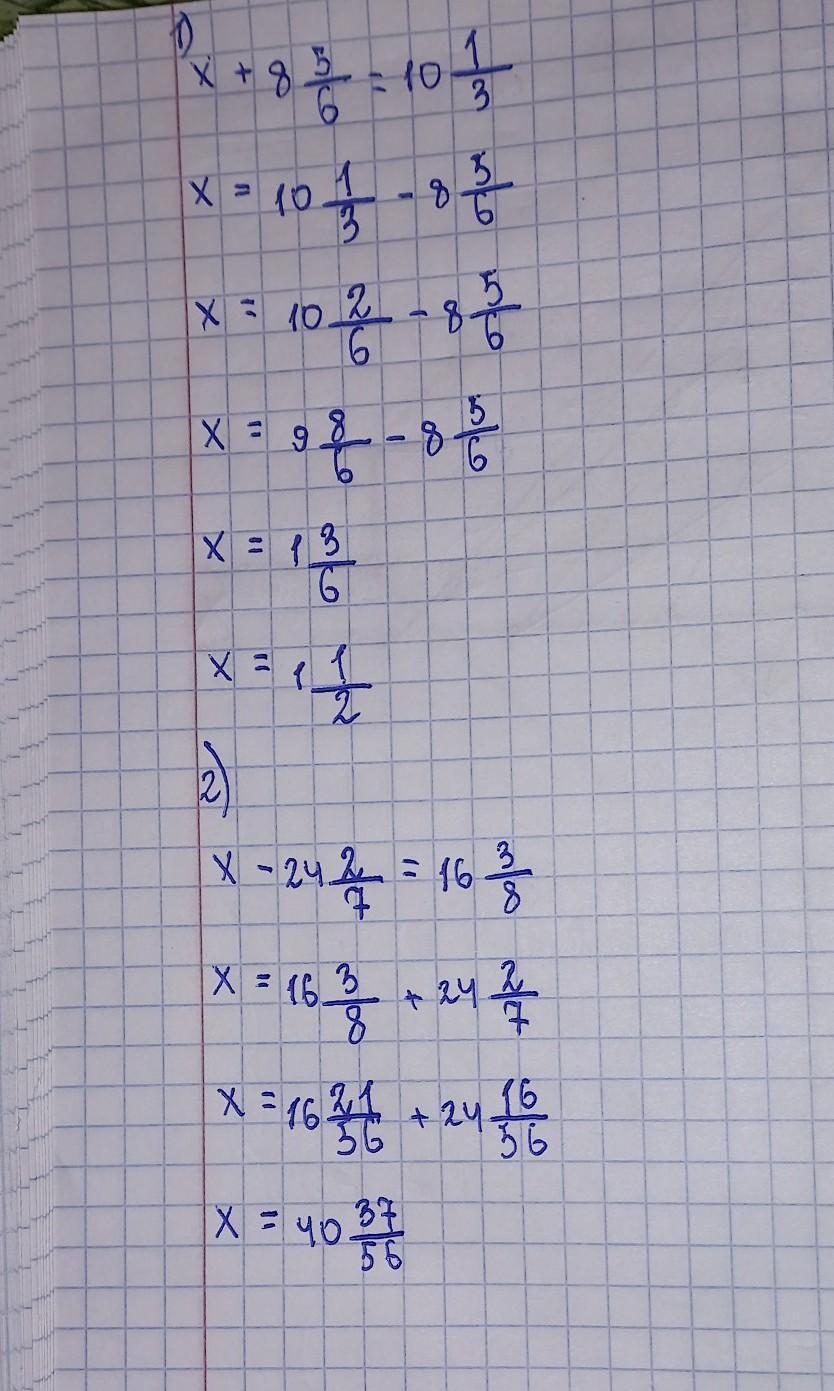 1)
x + 8 5/6 = 10 1/3
x = 10 1/3 - 8 5/6
x = 10 2/6 - 8 5/6
x = 9 8/6 - 8 5/6
x = 1 3/6
x = 1 1/2
2)
x - 24 2/7 = 16 3/8
x = 16 3/8 + 24 2/7
x = 16 21/56 + 24 16/56
x = 40 37/56